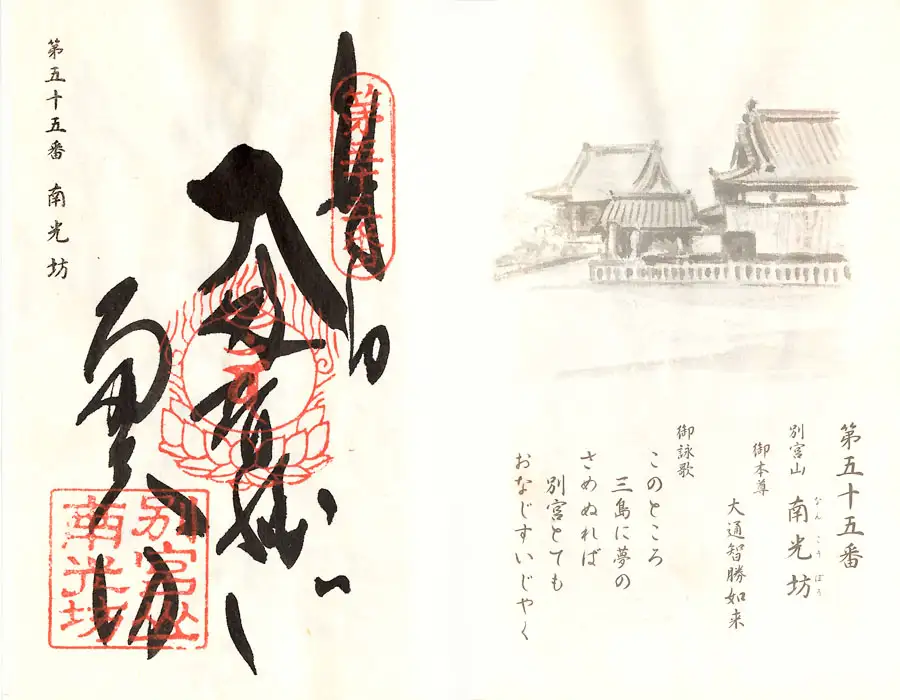 第五十五番
別宮山 南光坊
なんこうぼう
御本尊
大通智勝如来
御詠歌
このところ
三島に夢の
さめぬれば
別宮とても
おなじすいじやく
第五十五番
奉納
南光坊
別宮山
南光坊
第五十五番 南光坊